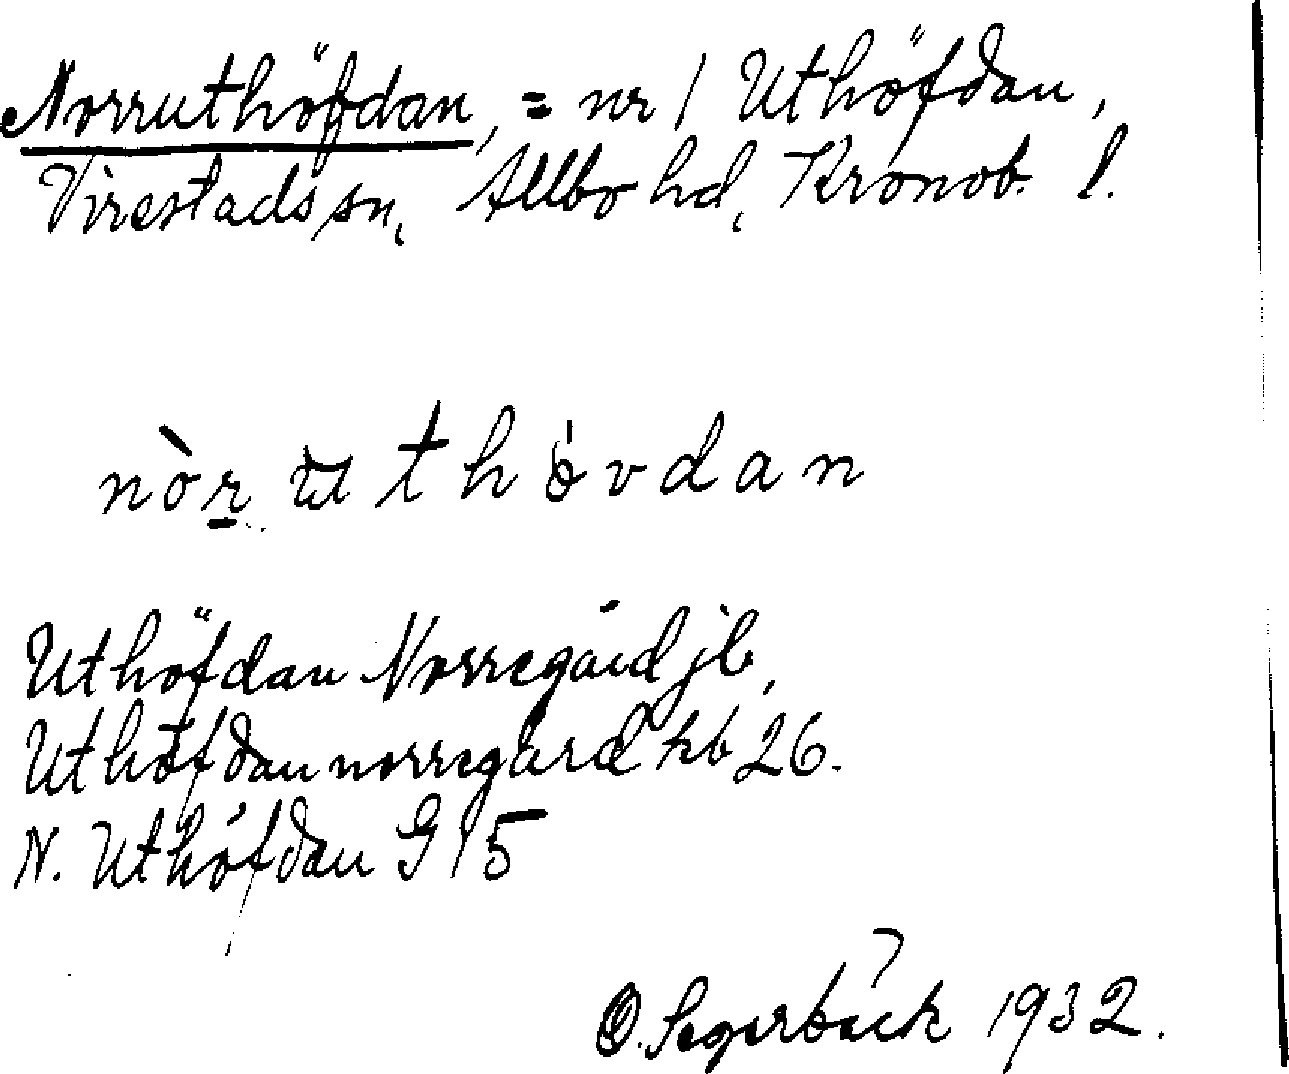 Norruthöfdan, = nr 1 Uthöfdan,
Virestads sn, Allbo hd, Kronob. l.
nòr ut hövdan
Uthöfdan Norregård jb,
Uthöfdan norregård hb 26.
N. Uthöfdan G 15
O. Segerbäck 1932.